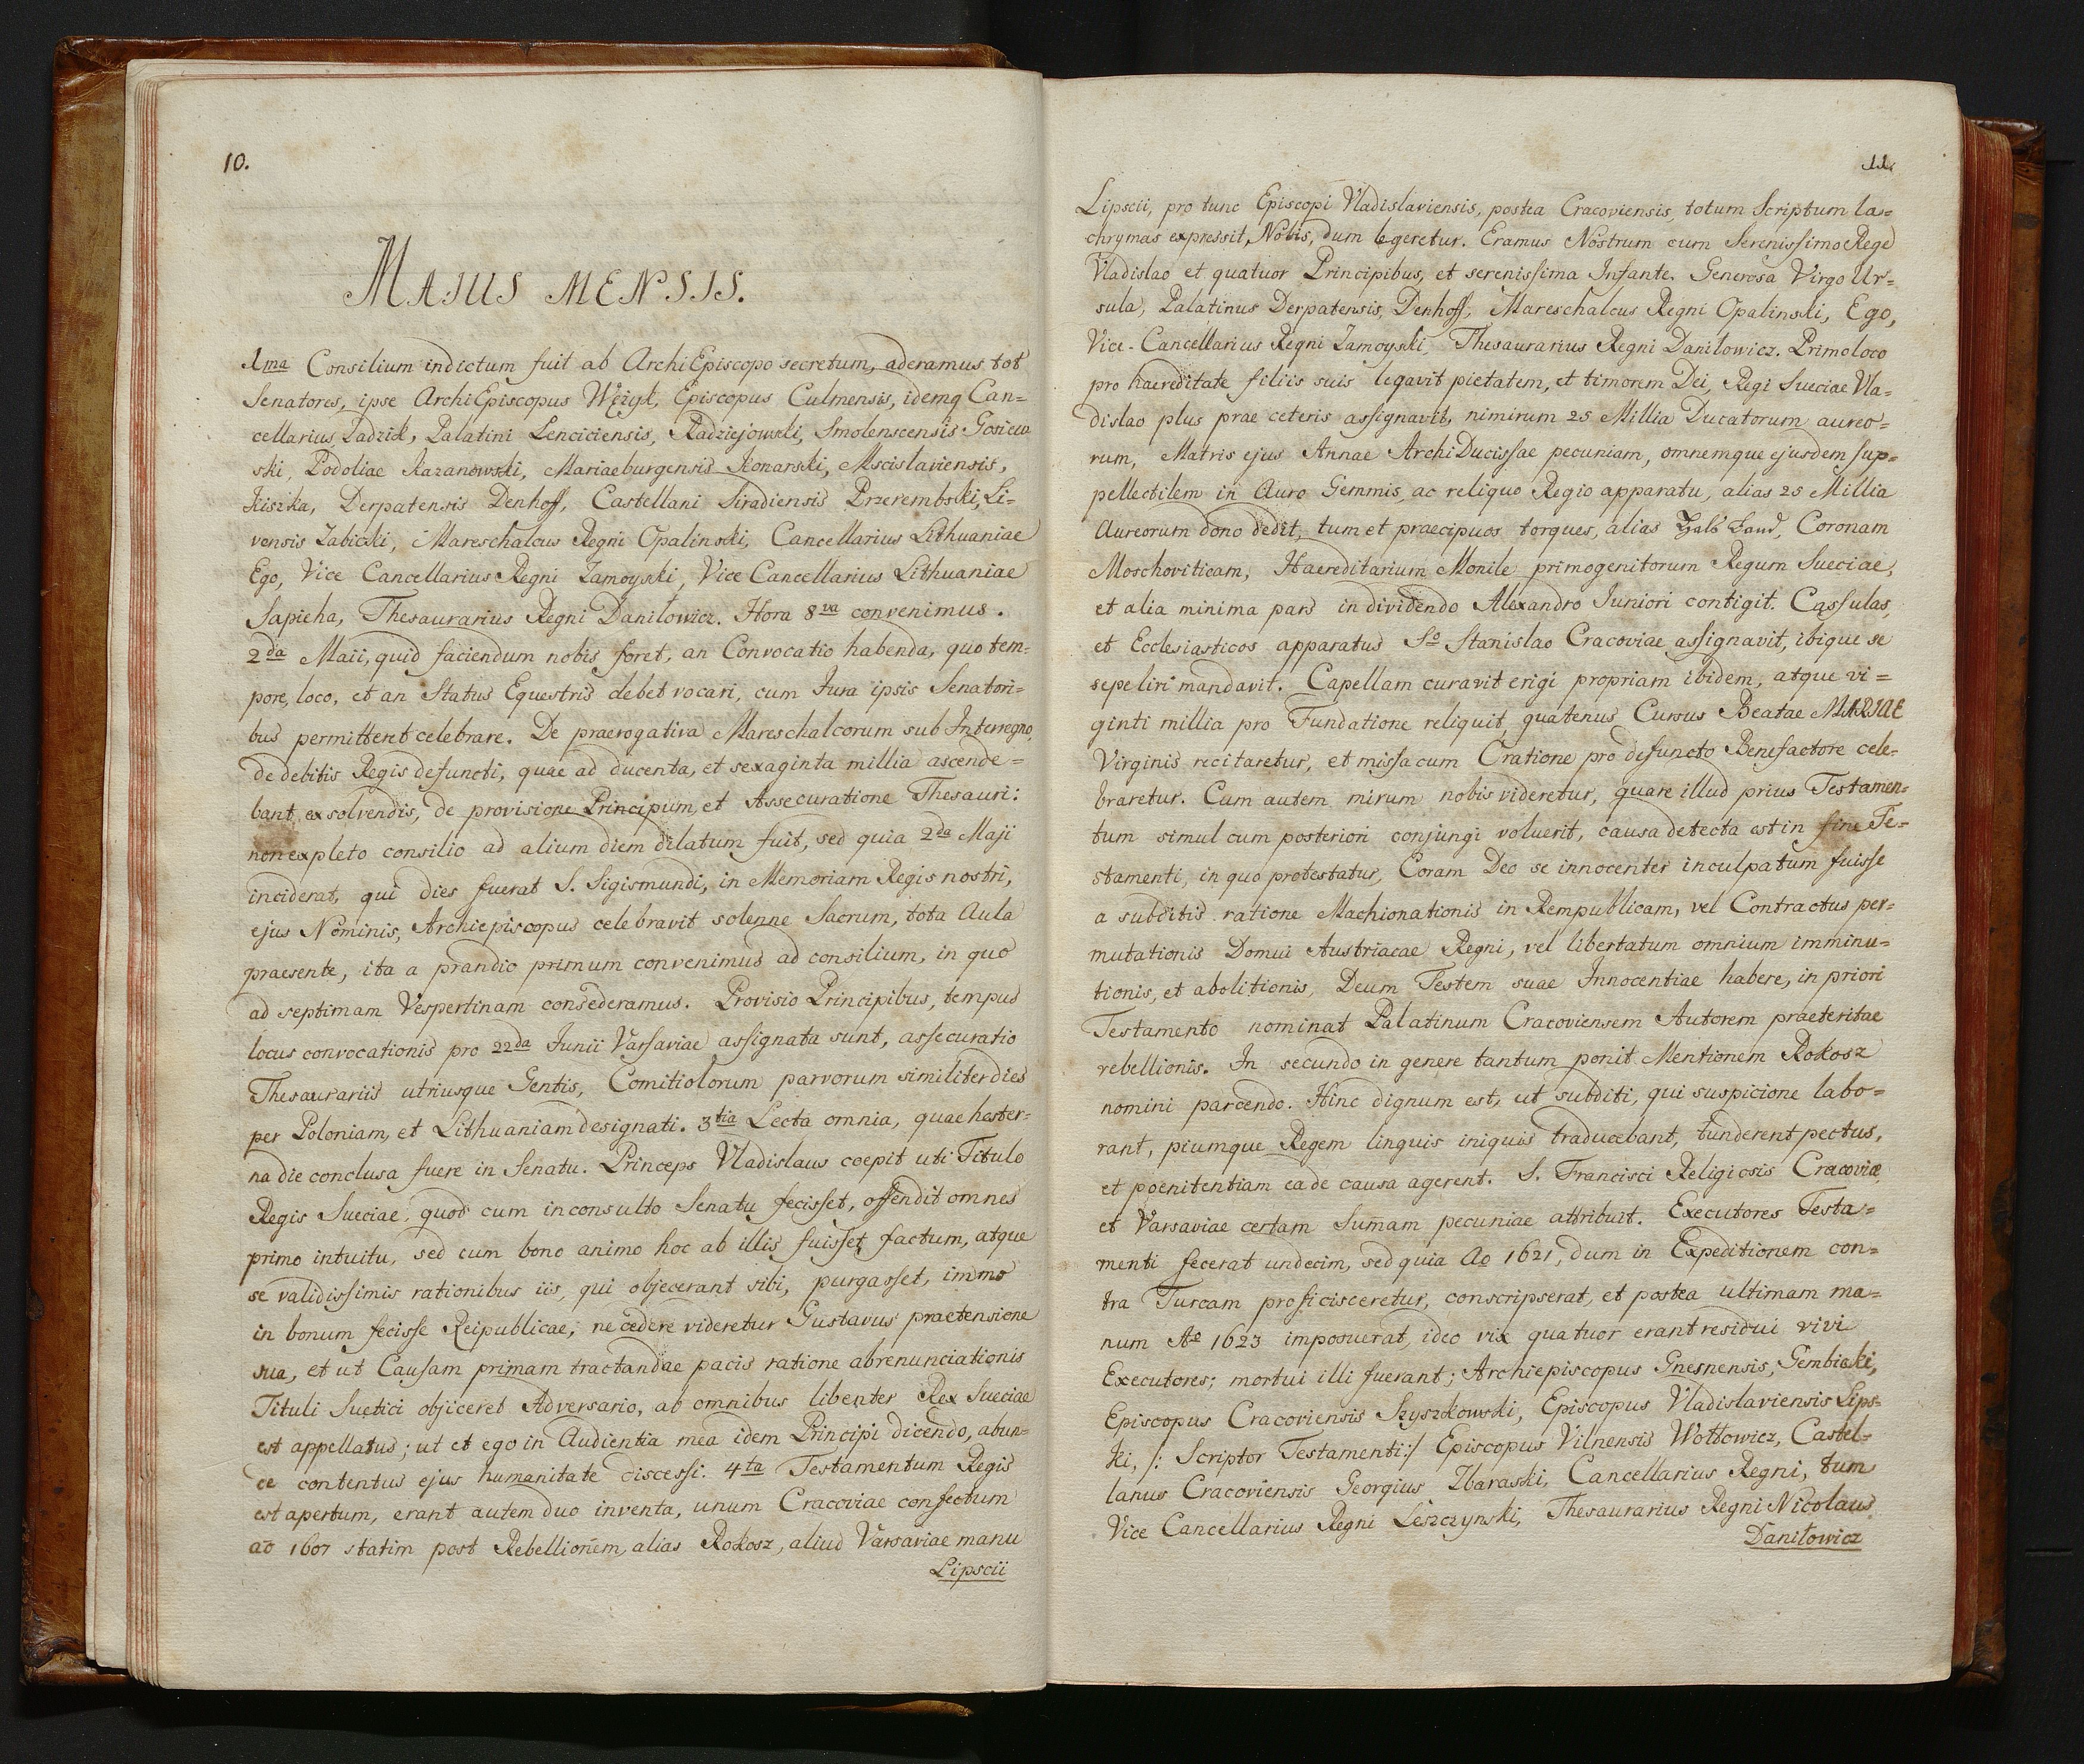 10.
MAJUS MENSIS.
1ma Consilium indictum fuit ab ArchiEpiscopo secretum, aderamus tot
Senatores, ipse ArchiEpiscopus Węzyk, Episcopus Culmensis, idemq Can=
cellarius Zadzik, Palatini Lenciciensis, Radziejowski, Smolenscensis Gosiew
ski, Podoliae Kazanowski, Mariaeburgensis Konarski, Mscislaviensis,
Kiszka, Derpatensis Denhoff, Castellani Siradiensis Przerembski, Li=
vensis Zabicki, Mareschalcus Regni Opalinski, Cancellarius Lithuaniae
Ego, Vice Cancellarius Regni Zamoyski, Vice Cancellarius Lithuaniae
Sapieha, Thesaurarius Regni Danilowicz. Hora 8va convenimus.
2da Maii, quid faciendum nobis foret, an Convocatio habenda, quo tem=
pore, loco, et an Status Equestris debet vocari, cum Jura ipsis Senatori=
bus permitteret celebrare. De praerogativa Mareschalcorum sub Interregno,
de debitis Regis defuncti, quae ad ducenta, et sexaginta millia ascende=
bant, exsolvendis, de provisione Principum, et Assecuratione Thesauri:
non expleto consilio ad alium diem dilatum fuit, sed quia 2da Maji
inciderat, qui dies fuerat S. Sigismundi, in Memoriam Regis nostri,
ejus Nominis, Archiepiscopus celebravit solenne Sacrum, tota Aula
praesente, ita a prandio primum convenimus ad consilium, in quo
ad septimam Vespertinam consederamus. Provisio Principibus, tempus
locus convocationis pro 22da Junii Varsaviae assignata sunt, assecuratio
Thesaurariis utriusque Gentis, Comitiolorum parvorum similiter dies
per Poloniam, et Lithuaniam designati. 3tia Lecta omnia, quae hester=
na die conclusa fuere in Senatu. Princeps Vladislaus coepit uti Titulo
Regis Sueciae, quod cum inconsulto Senatu fecisset, offendit omnes
primo intuitu, sed cum bono animo hoc ab illis fuisset factum, atque
se validissimis rationibus iis, qui objecerant sibi, purgasset, immo
in bonum fecisse Reipublicae, ne cedere videretur Gustavus praetensione
sua, et ut Causam primam tractandae pacis ratione abrenunciationis
Tituli Suetici objiceret Adversario, ab omnibus libenter Rex Sueciae
est appellatus; ut et ego in Audientia mea idem Principi dicendo, abun=
de contentus ejus humanitate discessi. 4ta Testamentum Regis
est apertum, erant autem duo inventa, unum Cracoviae confectum
ao 1607 statim post Rebellionem, alias Rokosz, aliud Varsaviae manu
Lipscii
11.
Lipscii, pro tunc Episcopi Vladislaviensis, postea Cracoviensis, totum Scriptum la=
chrymas expressit, Nobis, dum legeretur. Eramus Nostrum cum Serenissimo Rege
Vladislao et quatuor Principibus, et serenissima Infante. Generosa Virgo Ur=
sula, Palatinus Derpatensis, Denhoff, Mareschalcus Regni Opalinski, Ego,
Vice-Cancellarius Regni Zamoyski, Thesaurarius Regni Danilowicz. Primo loco
pro haereditate filiis suis legavit pietatem, et timorem Dei, Regi Sueciae Vla=
dislao plus prae ceteris assignavit, nimirum 25 Millia Ducatorum aureo=
rum, Matris ejus Annae ArchiDucissae pecuniam, omnemque ejusdem sup=
pellectilem in Auro Gemmis, ac reliquo Regio apparatu, alias 25 Millia
Aureorum dono dedit, tum et praecipuos torques, alias Halsband, Coronam
Moschoviticam, Haereditarium Monile primogenitorum Regum Sueciae,
et alia minima pars in dividendo Alexandro Juniori contigit. Cassulas,
et Ecclesiasticos apparatus So Stanislao Cracoviae assignavit, ibique se
sepeliri mandavit. Capellam curavit erigi propriam ibidem, atque vi=
ginti millia pro Fundatione reliquit, quatenus Cursus Beatae MARIAE
Virginis recitaretur, et missa cum Oratione pro defuncto Benefactore cele=
braretur. Cum autem mirum nobis videretur, quare illud prius Testamen=
tum simul cum posteriori conjungi voluerit, causa detecta est in fine Te=
stamenti, in quo protestatur, Coram Deo se innocenter inculpatum fuisse
a subditis ratione Machionationis in Rempublicam, vel Contractus per=
mutationis Domui Austriacae Regni, vel libertatum omnium imminu=
tionis, et abolitionis, Deum Testem suae Innocentiae habere, in priori
Testamento nominat Palatinum Cracoviensem Autorem praeteritae
rebellionis. In secundo in genere tantum ponit Mentionem Rokosz
nomini parcendo. Hinc dignum est, ut subditi, qui suspicione labo=
rant, piumque Regem linguis iniquis traducebant, tunderent pectus,
et poenitentiam ea de causa agerent. S. Francisci Religiosis Cracoviæ,
et Varsaviae certam Sum̃am pecuniae attribuit. Executores Testa=
menti fecerat undecim, sed quia Ao 1621, dum in Expeditionem con=
tra Turcam proficisceretur, conscripserat, et postea ultimam ma=
num Ao 1623 imposuerat, ideo vix quatuor erant residui vivi
Executores; mortui illi fuerant; Archiepiscopus Gnesnensis, Gembicki,
Episcopus Cracoviensis Szyszkowski, Episcopus Vladislaviensis Lips=
ki, /: Scriptor Testamenti:/ Episcopus Vilnensis Wołłowicz, Castel=
lanus Cracoviensis Georgius Zbaraski, Cancellarius Regni, tum
Vice Cancellarius Regni Leszczynski, Thesaurarius Regni Nicolaus
Daniłowicz